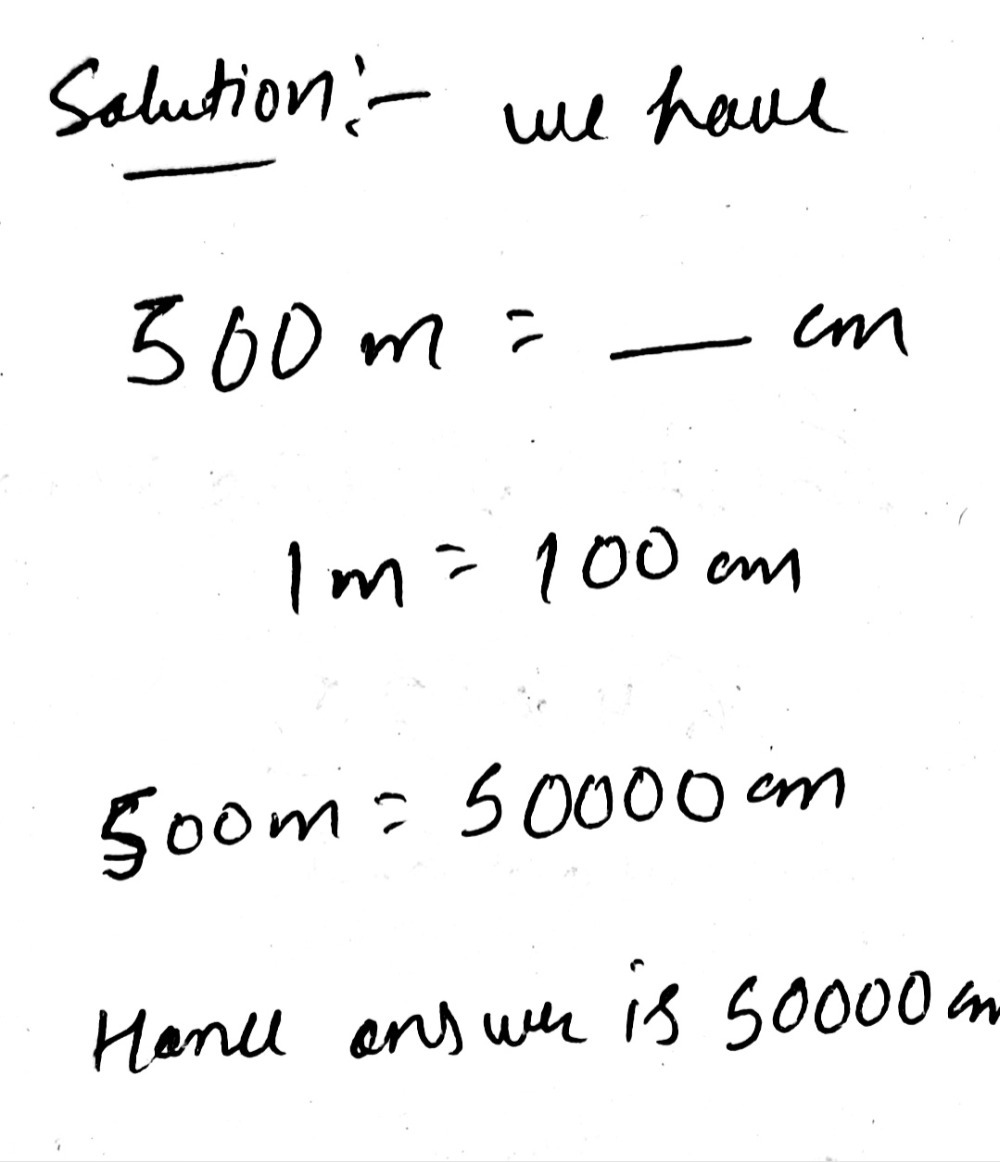 Solution:- we have
500 m = __ cm
1 m = 100 cm
500 m = 50000 cm
Hence answer is 50000 cm